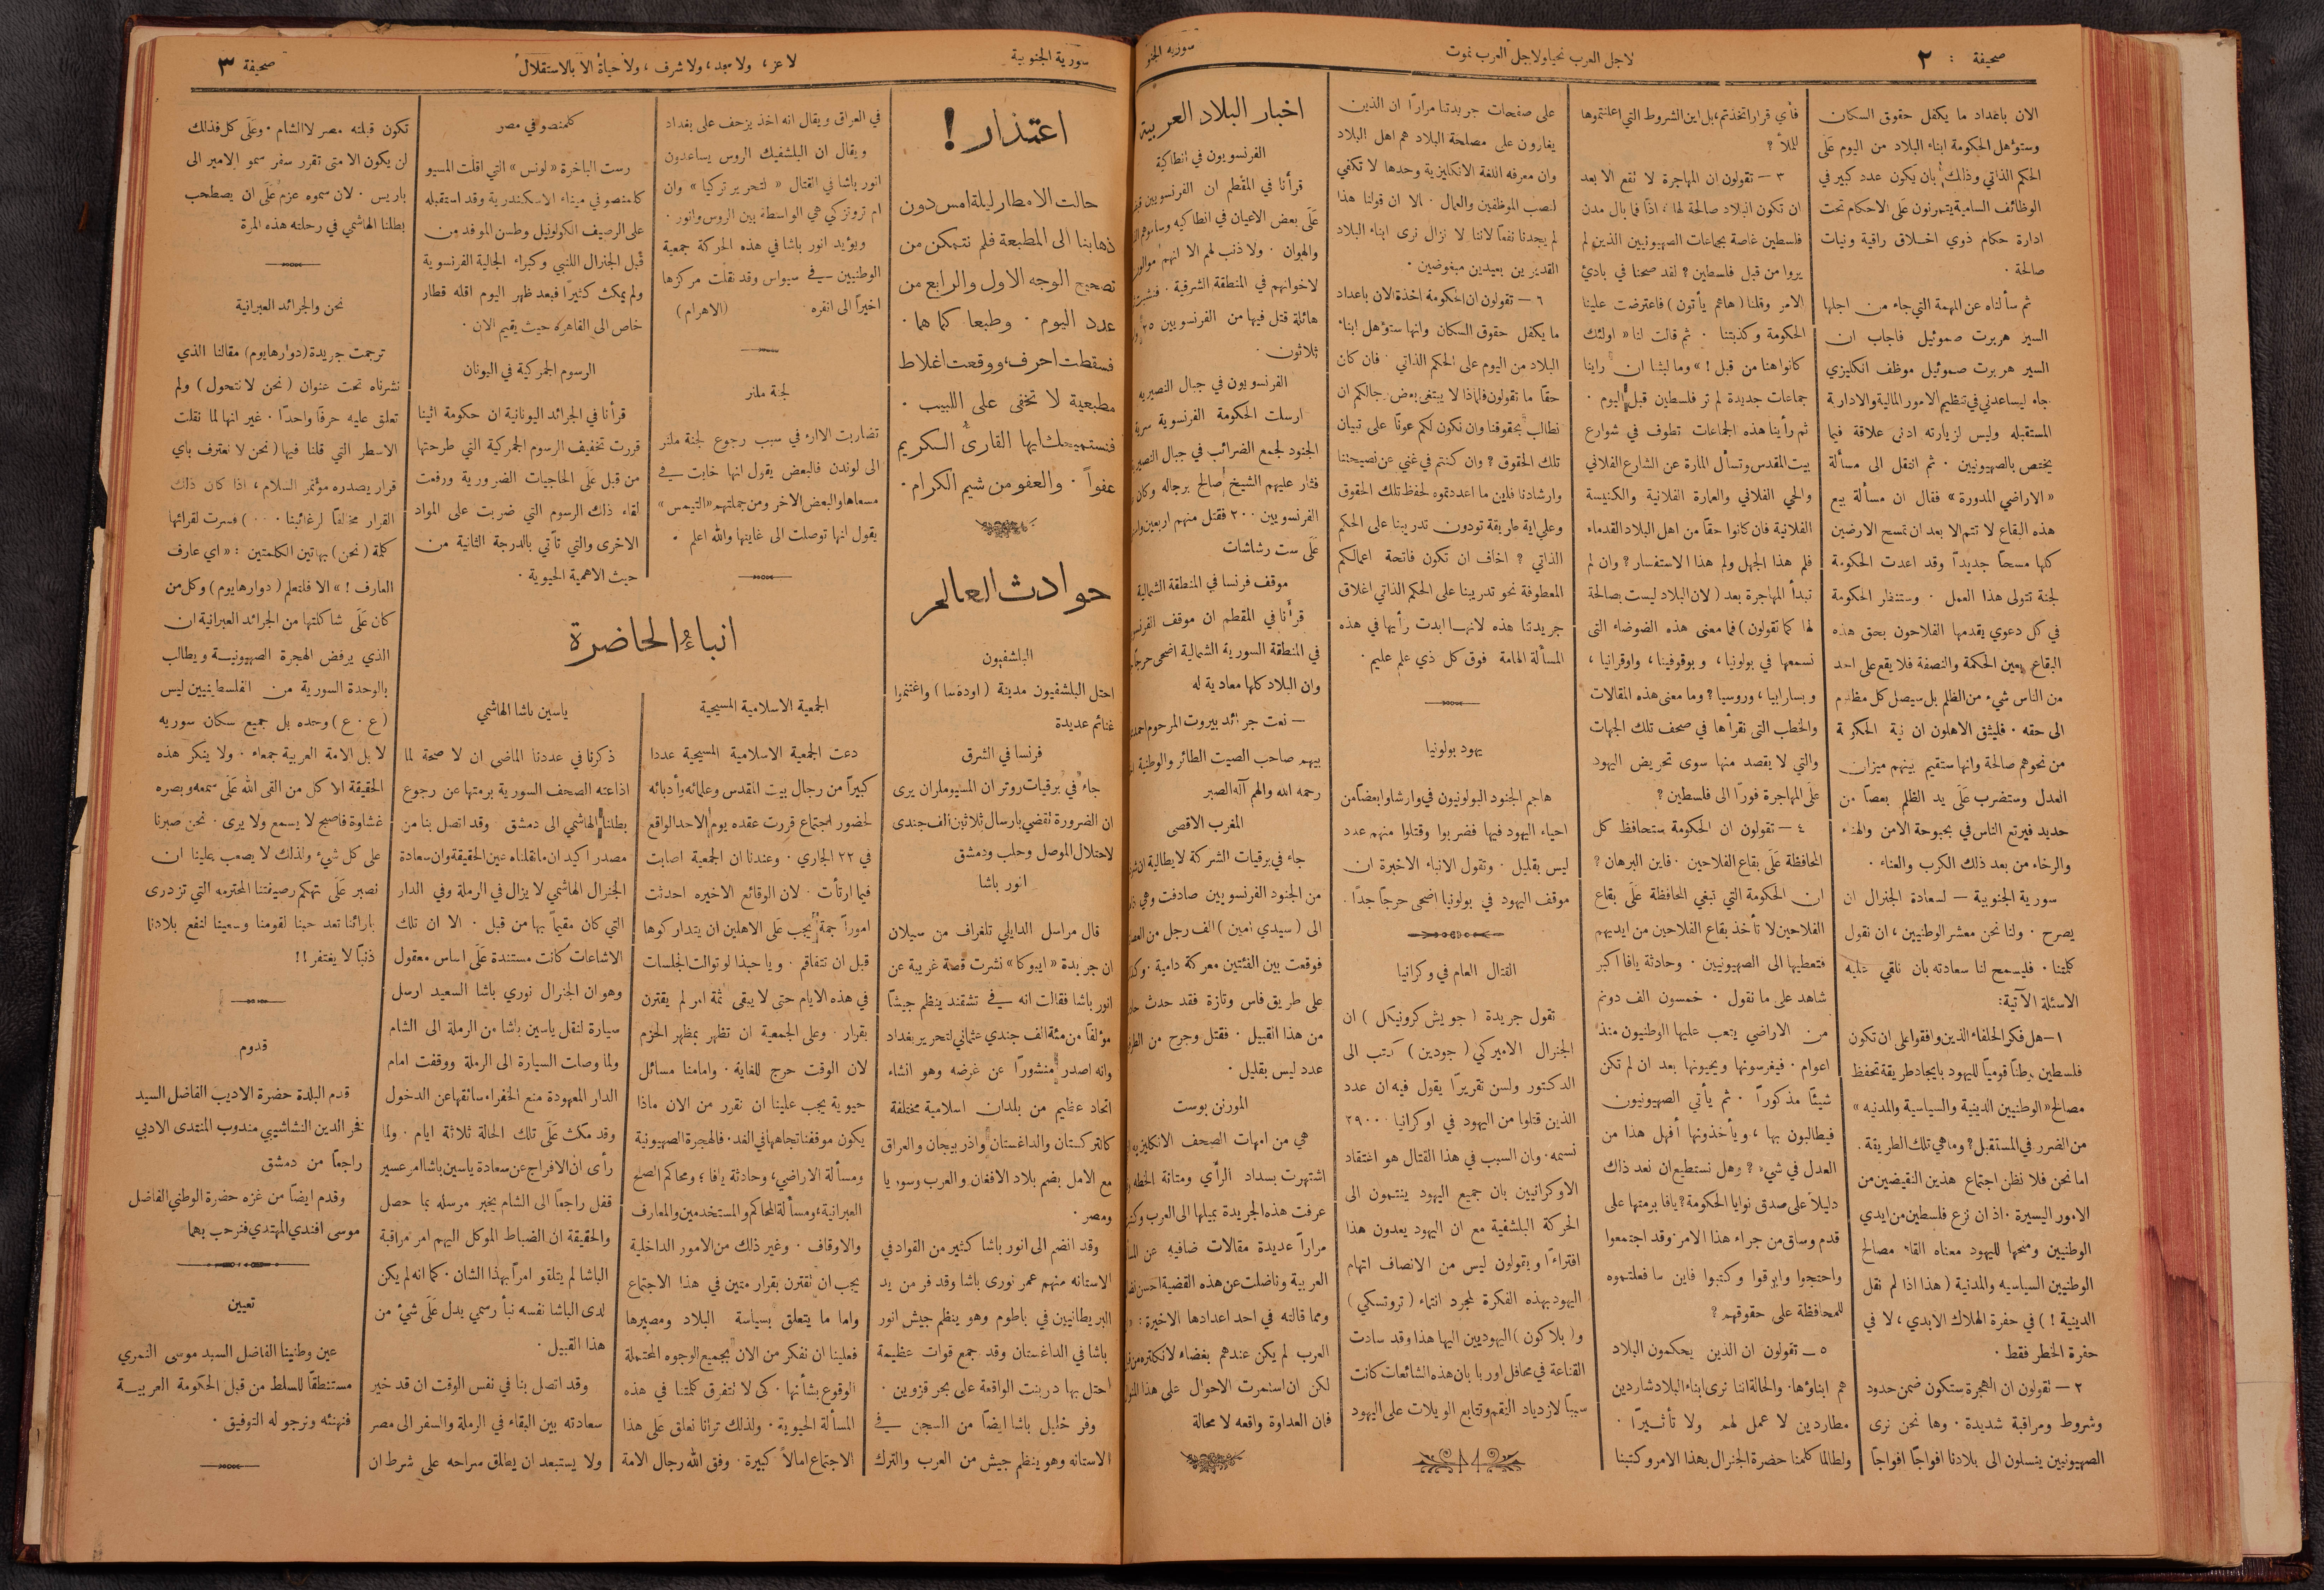 صحيفة : ٢
لاجل العرب نحيا ولاجل العرب نموت
سورية الجنو
الان باعداد ما يكفل حقوق السكان
وستؤهل الحكومة ابناء البلاد من اليوم عَلَى
الحكم الذاتي وذلك بان يكون عدد كبير في
الوظائف السامية يتمرنون عَلَى الاحكام تحت
ادارة حكام ذوي اخلاق راقية ونيات
صالحة ٠
ثم سألناه عن المهمة التي جاء من اجلها
السير هربرت صموئيل فاجاب ان
السير هربرت صموئيل موظف انكليزي
جاء ليساعدني في تنظيم الامور المالية والادارية
المستقبله وليس لزيارته ادنى علاقة فيما
يختص بالصهيونيين ٠ ثم انتقل الى مسألة
«الاراضي المدورة» فقال ان مسألة بيع
هذه البقاع لا تتم الا بعد ان تمسح الارضين
كلها مسحاً جديداً وقد اعدت الحكومة
لجنة تتولى هذا العمل ٠ وستنظر الحكومة
في كل دعوي يقدمها الفلاحون بحق هذه
البقاع بعين الحكمة والنصفة فلا يقع على احد
من الناس شيء من الظلم بل سيصل كل مظلوم
الى حقه ٠ فليثق الاهلون ان نية الحكومة
من نحوهم صالحة وانها ستقيم بينهم ميزان
العدل وستضرب عَلَى يد الظلم بعصاً من
حديد فيرتع الناس في بحبوحة الامن والهناء
والرخاء من بعد ذلك الكرب والعناء ٠
سورية الجنوبية — لسعادة الجنرال ان
يصرح ٠ ولنا نحن معشر الوطنيين، ان نقول
كلمتنا ٠ فليسمح لنا سعادته بان نلقي عليه
الاسئلة الآتية:
١— هل فكر الحلفاء الذين وافقوا على ان تكون
فلسطين وطناً قومياً لليهود بايجاد طريقة تحفظ
مصالح «الوطنيين الدينية والسياسية والمدنيه»
من الضرر في المستقبل؟ وما هي تلك الطريقة ٠
اما نحن فلا نظن اجتماع هذين النقيضين من
الامور اليسيرة ٠ اذ ان نزع فلسطين من ايدي
الوطنيين ومنحها لليهود معناه القاء مصالح
الوطنيين السياسيه والمدنية (هذا اذا لم نقل
الدينية!) في حفرة الهلاك الابدي، لا في
حفرة الخطر فقط ٠
٢ — تقولون ان الهجرة ستكون ضمن حدود
وشروط ومراقبة شديدة ٠ وها نحن نرى
الصهيونيين ينسلون الى بلادنا افواجاً افواجاً
فأي قرار اتخذتم، بل اين الشروط التي اعلنتموها
للملأ؟
٣ — تقولون ان المهاجرة لا تقع الا بعد
ان تكون البلاد صالحة لها، اذاً فما بال مدن
فلسطين غاصة بجماعات الصهيونيين الذين لم
يروا من قبل فلسطين؟ لقد صحنا في بادئ
الامر وقلنا (ها هم يأتون) فاعترضت علينا
الحكومة وكذبتنا ٠ ثم قالت لنا «اولئك
كانوا هنا من قبل!» وما لبثنا ان راينا
جماعات جديدة لم تر فلسطين قبل اليوم ٠
ثم رأينا هذه الجماعات تطوف في شوارع
بيت المقدس وتسأل المارة عن الشارع الفلاني
والحي الفلاني والعمارة الفلانية والكنيسة
الفلانية فان كانوا حقاً من اهل البلاد القدماء
فلم هذا الجهل ولم هذا الاستفسار؟ وان لم
تبدأ المهاجرة بعد (لان البلاد ليست بصالحة
لها كما تقولون) فما معنى هذه الضوضاء التى
نسمعها في بولونيا، وبوقوفينا، واوقرانيا،
وبسارابيا، وروسيا؟ وما معنى هذه المقالات
والخطب التى نقرأها في صحف تلك الجهات
والتي لا يقصد منها سوى تحريض اليهود
على المهاجرة فوراً الى فلسطين؟
٤ — تقولون ان الحكومة ستحافظ كل
المحافظة عَلَى بقاع الفلاحين ٠ فاين البرهان؟
ان الحكومة التي تبغي المحافظة عَلَى بقاع
الفلاحين لا تأخذ بقاع الفلاحين من ايديهم
فتعطيها الى الصهيونيين ٠ وحادثة يافا اكبر
شاهد على ما نقول ٠ خمسون الف دونم
من الاراضي يتعب عليها الوطنيون منذ
اعوام ٠ فيغرسونها ويحيونها بعد ان لم تكن
شيئاً مذكوراً ٠ ثم يأتي الصهيونيون
فيطالبون بها، ويأخذونها أفهل هذا من
العدل في شيء؟ وهل نستطيع ان نعد ذلك
دليلاً على صدق نوايا الحكومة؟ يافا برمتها على
قدم وساق من جراء هذا الامر وقد اجتمعوا
واحتجوا وابرقوا وكتبوا فاين ما فعلتموه
للمحافظة على حقوقهم؟
٥ — تقولون ان الذين يحكمون البلاد
هم ابناؤها ٠ والحالة اننا نرى ابناء البلاد شاردين
مطاردين لا عمل لهم ولا تأثيراً ٠
ولطالما كلمنا حضرة الجنرال بهذا الامر وكتبنا
على صفحات جريدتنا مراراً ان الذين
يغارون على مصلحة البلاد هم اهل البلاد
وان معرفه اللغة الانكليزية وحدها لا تكفي
لنصب الموظفين والعمال ٠ الا ان قولنا هذا
لم يجدنا نفعاً لاننا لا نزال نرى ابناء البلاد
القديرين بعيدين مبغوضين ٠
٦ — تقولون ان الحكومة اخذة الان باعداد
ما يكفل حقوق السكان وانها ستؤهل ابناء
البلاد من اليوم على الحكم الذاتي ٠ فان كان
حقاً ما تقولون فلماذا لا يبتغى بعض رجالكم ان
نطالب بحقوقنا وان نكون لكم عوناً على تبيان
تلك الحقوق؟ وان كنتم في غني عن نصيحتنا
وارشادنا فاين ما اعددتموه لحفظ تلك الحقوق
وعلى اية طريقة تودون تدريبنا على الحكم
الذاتي؟ اخاف ان تكون فاتحة اعمالكم
المعطوفة نحو تدريبنا على الحكم الذاتي اغلاق
جريدتنا هذه لانها ابدت رأيها في هذه
المسألة الهامة فوق كل ذي علم عليم ٠
يهود بولونيا
هاجم الجنود البولونيون في وارشاوا بعضاً من
احياء اليهود فيها فضربوا وقتلوا منهم عدد
ليس بقليل ٠ وتقول الانباء الاخيرة ان
موقف اليهود في بولونيا اضحى حرجاً جداً ٠
القتال العام في وكرانيا
تقول جريدة (جويش كرونيكل) ان
الجنرال الاميركي (جودين) كتب الى
الدكتور ولسن تقريراً يقول فيه ان عدد
الذين قتلوا من اليهود في اوكرانيا ٢٩٠٠٠
نسمه ٠ وان السبب في هذا القتال هو اعتقاد
الاوكرانيين بان جميع اليهود ينتمون الى
الحركة البلشفية مع ان اليهود يعدون هذا
افتراءً ويقولون ليس من الانصاف اتهام
اليهود بهذه الفكرة لمجرد انتماء (تروتسكي)
و(بلاكون) اليهوديين اليها هذا وقد سادت
القناعة في محافل اوربا بان هذه الشائعات كانت
سبباً لازدياد النقم وتتابع الويلات على اليهود
اخبار البلاد العربية
الفرنسويون في انطاكية
قرأنا في المقطم ان الفرنسويين
عَلَى بعض الاعيان في انطاكيه وساموهم
والهوان ٠ ولا ذنب لهم الا انهم موالون
لاخوانهم في المنطقة الشرقية ٠
هائلة قتل فيها من الفرنسويين ٢٥
ثلاثون ٠
الفرنسويون في جبال النصيريه
ارسلت الحكومة الفرنسوية سرية
الجنود لجمع الضرائب في جبال
فثار عليهم الشيخ صالح برجاله وكان
الفرنسويين ٢٠٠ فقتل منهم اربعين
عَلَى ست رشاشات
موقف فرنسا في المنطقة الشمالية
قرأنا في المقطم ان موقف
في المنطقة السورية الشمالية اضحى حرجاً
وان البلاد كلها معادية له
— نعت جرائد بيروت المرحوم احمد
بيهم صاحب الصيت الطائر والوطنية
رحمه الله والهم آله الصبر
المغرب الاقصى
جاء في برقيات الشركة الايطالية ان
من الجنود الفرنسويين صادفت وهي
الى (سيدي امين) الف رجل من
فوقعت بين الفئتين معركة دامية ٠
على طريق فاس وتازة فقد حدث
من هذا القبيل ٠ فقتل وجرح من
عدد ليس بقليل ٠
المورنن بوست
هي من امهات الصحف الانكليزيه
اشتهرت بسداد الرأي ومتانة الخطه
عرفت هذه الجريدة بميلها الى العرب
مراراً عديدة مقالات ضافيه عن
العربية وناضلت عن هذه القضية احسن
ومما قالته في احد اعدادها الاخيرة:
العرب لم يكن عندهم بغضاء لانكلتره من
لكن ان استمرت الاحوال على هذا
فان العداوة واقعه لا محالة
سورية الجنوبية
لا عز، ولا مجد، ولا شرف، ولا حياة الا بالاستقلال
صحيفة ٣
اعتذار!
حالت الامطار ليلة امس دون
ذهابنا الى المطبعة فلم نتمكن من
تصحيح الوجه الاول والرابع من
عدد اليوم ٠ وطبعا كما هما ٠
فسقطت احرف، ووقعت اغلاط
مطبعية لا تخفى على اللبيب ٠
فنستميحك ايها القارئ الكريم
عفواً ٠ والعفو من شيم الكرام ٠
حوادث العالم
البلشفيون
احتل البلشفيون مدينة (اودهسا) واغتنموا
غنائم عديدة
فرنسا في الشرق
جاء في برقيات روتر ان المسيو ملران يرى
ان الضرورة تقضي بارسال ثلاثين الف جندى
لاحتلال الموصل وحلب ودمشق
انور باشا
قال مراسل الدايلي تلغراف من سيلان
ان جريدة «ايبوكا» نشرت قصة غريبة عن
انور باشا فقالت انه في تشقند ينظم جيشاً
مؤلفاً من مئة الف جندي عثماني لتحرير بغداد
وانه اصدر منشوراً عن غرضه وهو انشاء
اتحاد عظيم من بلدان اسلامية مختلفة
كالتركستان والداغستان واذربيجان والعراق
مع الامل بضم بلاد الافغان والعرب وسوريا
ومصر ٠
وقد انضم الى انور باشا كثير من القواد في
الاستانه منهم عمر نورى باشا وقد فر من يد
البريطانيين في باطوم وهو ينظم جيش انور
باشا في الداغستان وقد جمع قوات عظيمة
احتل بها دربنت الواقعة على بحر قزوين ٠
وفر خليل باشا ايضاً من السجن في
الاستانه وهو ينظم جيش من العرب والترك
في العراق ويقال انه اخذ يزحف على بغداد
ويقال ان البلشفيك الروس يساعدون
انور باشا في القتال «لتحرير تركيا» وان
ام تروتزكي هي الواسطة بين الروس وانور ٠
ويؤيد انور باشا في هذه الحركة جمعية
الوطنيين في سيواس وقد نقلت مركزها
اخيراً الى انقره ٠ (الاهرام)
لجنة ملنر
تضاربت الآراء في سبب رجوع لجنة ملنر
الى لوندن فالبعض يقول انها خابت في
مسعاها والبعض الاخر ومن جملتهم «التيمس»
يقول انها توصلت الى غايتها والله اعلم ٠
كلمنصو في مصر
رست الباخرة «لوتس» التي اقلت المسيو
كلمنصو في ميناء الاسكندرية وقد استقبله
على الرصيف الكولونيل وطسن الموفد من
قبل الجنرال اللنبي وكبراء الجالية الفرنسوية
ولم يمكث كثيراً فبعد ظهر اليوم اقله قطار
خاص الى القاهرة حيث يقيم الان ٠
الرسوم الجمركية في اليونان
قرأنا في الجرائد اليونانية ان حكومة اثينا
قررت تخفيف الرسوم الجمركية التي طرحتها
من قبل عَلَى الحاجيات الضرورية ورفعت
لقاء ذلك الرسوم التي ضربت على المواد
الاخرى والتي تأتي بالدرجة الثانية من
حيث الاهمية الحيوية ٠
انباء الحاضرة
الجمعية الاسلامية المسيحية
دعت الجمعية الاسلامية المسيحية عددا
كبيراً من رجال بيت المقدس وعلمائه وأدبائه
لحضور اجتماع قررت عقده يوم الاحد الواقع
في ٢٢ الجاري ٠ وعندنا ان الجمعية اصابت
فيما ارتأت ٠ لان الوقائع الاخيره احدثت
اموراً جمة يجب عَلَى الاهلين ان يتداركوها
قبل ان تتفاقم ٠ ويا حبذا لو توالت الجلسات
في هذه الايام حتى لا يبقى ثمة امر لم يقترن
بقرار ٠ وعلى الجمعية ان تظهر بمظهر الحزم
لان الوقت حرج للغاية ٠ وامامنا مسائل
حيوية يجب علينا ان نقرر من الان ماذا
يكون موقفنا تجاهها في الغد ٠ فالهجرة الصهيونية
ومسألة الاراضي، وحادثة يافا، ومحاكم الصلح
العبرانية، ومسألة المحاكم والمستخدمين والمعارف
والاوقاف ٠ وغير ذلك من الامور الداخلية
يجب ان تقترن بقرار متين في هذا الاجتماع
واما ما يتعلق بسياسة البلاد ومصيرها
فعلينا ان نفكر من الان بجميع الوجوه المحتملة
الوقوع بشأنها ٠ كي لا تتفرق كلمتنا في هذه
المسألة الحيوية ٠ ولذلك ترانا نعلق عَلَى هذا
الاجتماع امالاً كبيرة ٠ وفق الله رجال الامة
ياسين باشا الهاشمي
ذكرنا في عددنا الماضي ان لا صحة لما
اذاعته الصحف السورية برمتها عن رجوع
بطلنا الهاشمي الى دمشق ٠ وقد اتصل بنا من
مصدر اكيد ان ما نقلناه عين الحقيقة وان سعادة
الجنرال الهاشمي لا يزال في الرملة وفي الدار
التي كان مقيماً بها من قبل ٠ الا ان تلك
الاشاعات كانت مستندة عَلَى اساس معقول
وهو ان الجنرال نوري باشا السعيد ارسل
سيارة لنقل ياسين باشا من الرملة الى الشام
ولما وصلت السيارة الى الرملة ووقفت امام
الدار المعهودة منع الخفراء سائقها عن الدخول
وقد مكث عَلَى تلك الحالة ثلاثة ايام ٠ ولما
رأى ان الافراج عن سعادة ياسين باشا امر عسير
قفل راجعاً الى الشام يخبر مرسله بما حصل
والحقيقة ان الضباط الموكل اليهم امر مراقبة
الباشا لم يتلقو امراً بهذا الشان ٠ كما انه لم يكن
لدى الباشا نفسه نبأ رسمي يدل عَلَى شيئ من
هذا القبيل ٠
وقد اتصل بنا في نفس الوقت ان قد خير
سعادته بين البقاء في الرملة والسفر الى مصر
ولا يستبعد ان يطلق سراحه على شرط ان
تكون قبلته مصر لا الشام ٠ وعَلَى كل فذلك
لن يكون الا متى تقرر سفر سمو الامير الى
باريس ٠ لان سموه عزم عَلَى ان يصطحب
بطلنا الهاشمي في رحلته هذه المرة
نحن والجرائد العبرانية
ترجمت جريدة (دوارهايوم) مقالنا الذي
نشرناه تحت عنوان (نحن لا نتحول) ولم
تعلق عليه حرفاً واحداً ٠ غير انها لما نقلت
الاسطر التي قلنا فيها (نحن لا نعترف باي
قرار يصدره مؤتمر السلام، اذا كان ذلك
القرار مخالفاً لرغائبنا ٠٠٠) فسرت لقرائها
كلمة (نحن) بهاتين الكلمتين: «اي عارف
العارف!» الا فلتعلم (دوارهايوم) وكل من
كان عَلَى شاكلتها من الجرائد العبرانية ان
الذي يرفض الهجرة الصهيونيــة ويطالب
بالوحدة السورية من الفلسطينيين ليس
(ع ٠ ع) وحده بل جميع سكان سوريه
لا بل الامة العربية جمعاء ٠ ولا ينكر هذه
الحقيقة الا كل من القى الله عَلَى سمعه وبصره
غشاوة فاصبح لا يسمع ولا يرى ٠ نحن صبرنا
على كل شيء ولذلك لا يصعب علينا ان
نصبر عَلَى تهكم رصيفتنا المحترمه التي تزدرى
بارائنا تعد حبنا لقومنا وسعينا لنفع بلادنا
ذنباً لا يغتفر!!
قدوم
قدم البلدة حضرة الاديب الفاضل السيد
فخر الدين النشاشيبي مندوب المنتدى الادبي
راجعاً من دمشق
وقدم ايضاً من غزه حضرة الوطني الفاضل
موسى افندي المهتدي فنرحب بهما
تعيين
عين وطنينا الفاضل السيد موسى النمري
مستنطقاً للسلط من قبل الحكومة العربيــة
فنهنئه ونرجو له التوفيق ٠